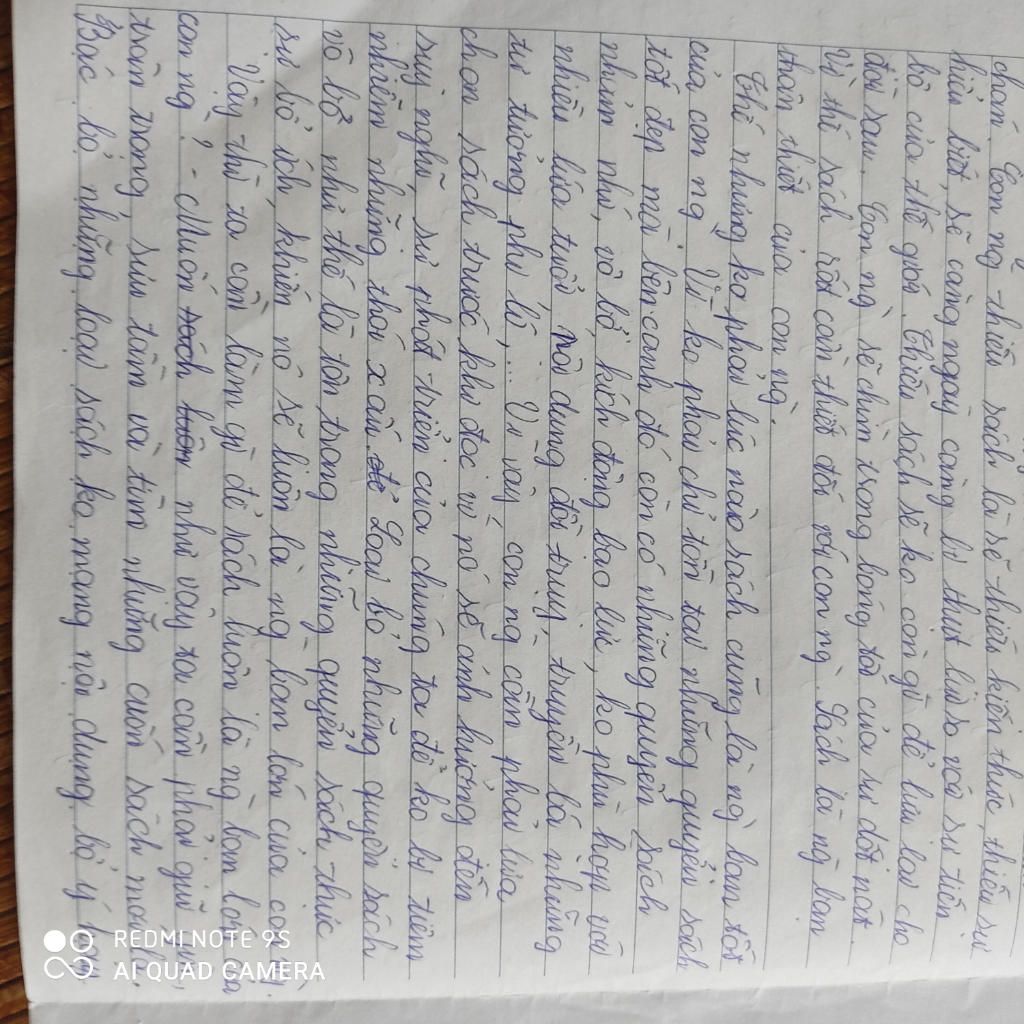 chân. Con ng thiếu sách là sẽ thiếu kiến thức, thiếu sự
hiểu biết, sẽ càng ngày càng bị thụt lùi so với sự tiến
bộ của thế giới. Thiếu sách sẽ ko còn gì để lưu lại cho
đời sau. Con ng sẽ chìm trong bóng tối của sự dốt nát.
Vì thế sách rất cần thiết đối với con ng. Sách là ng bạn
thân thiết của con ng.
Thế nhưng ko phải lúc nào sách cũng là ng bạn tốt
của con ng. Vì ko phải chỉ tồn tại những quyển sách
tốt đẹp mà bên cạnh đó còn có những quyển sách
nhảm nhí, vô bổ kích động bạo lực, ko phù hợp với
nhiều lứa tuổi nội dung đồi trụy, truyền bá những
tư tưởng phi lí,... Vì vậy con ng cần phải lựa
chọn sách trước khi đọc vì nó sẽ ảnh hưởng đến
suy nghĩ, sự phát triển của chúng ta để ko bị tiêm
nhiễm những thói xấu. Loại bỏ những quyển sách
vô bổ như thế là tôn trọng những quyển sách thực
sự bổ ích khiến nó sẽ luôn là ng bạn lớn của con ng.
Vậy thì ta cần làm gì để sách luôn là ng bạn lớn của
con ng? - Muốn như vậy ta cần phải giữ gìn,
trân trọng, sưu tầm và tìm những cuốn sách
Bác bỏ những loại sách ko mang nội dung bổ ý hay